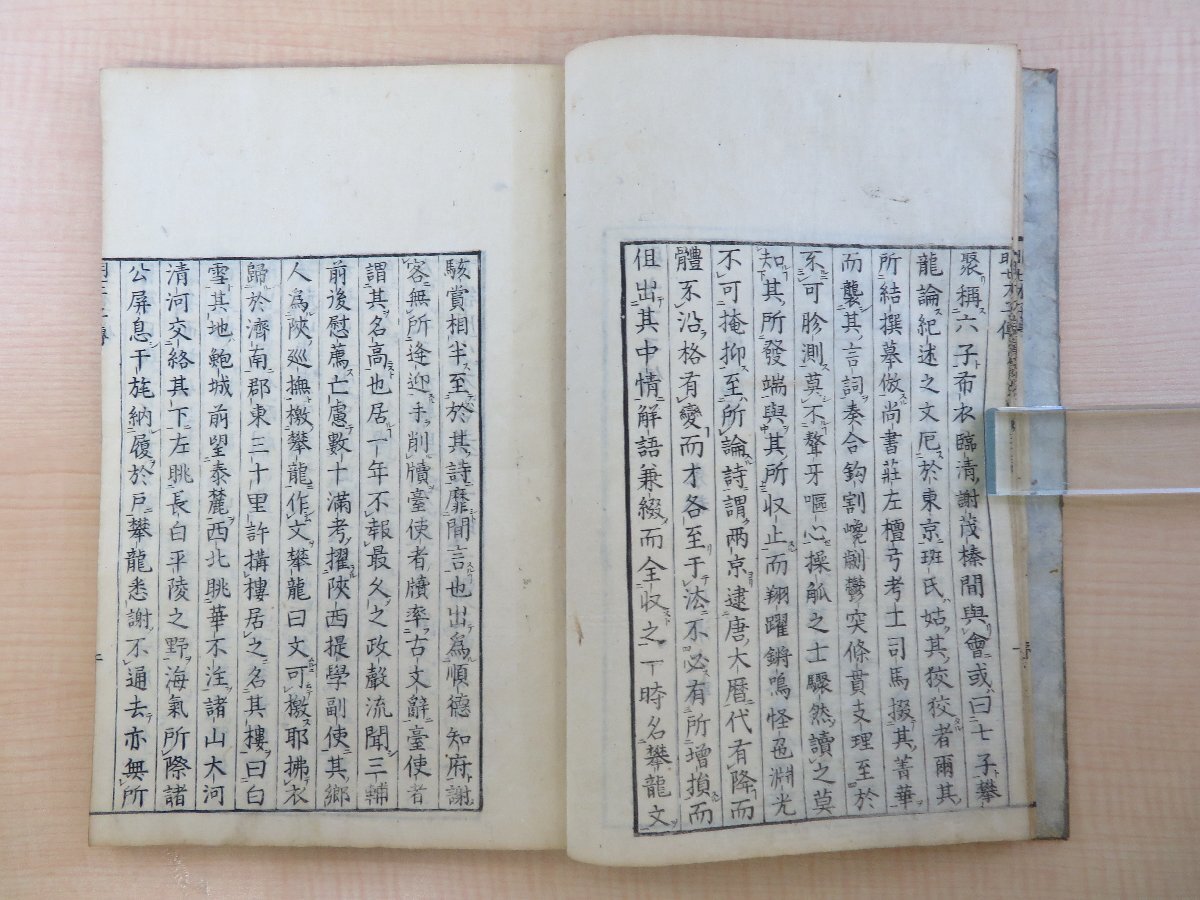 聚稱六子布衣臨清謝茂榛間與會或曰七子攀
龍論紀述之文厄於東京班氏姑其狡狡者爾其
所結撰摹倣尚書莊左檀弓考工司馬掇其菁華
而襲其言詞奏合鈎割巉劌鬱突條貫支理至於
不可眕測莫不聱牙嘔心操觚之士驟然讀之莫
知其所發端與其所收止而翔躍鏘鳴怪色淵光
不可掩抑至所論詩謂兩京逮唐大曆代有降而
體不沿格有變而才各至于法不必有所增損而
但出其中情解語兼綴而全收之一時名攀龍文
駭賞相半至於其詩靡間言也出爲順德知府謝
客無所逢迎手削牘臺使者牘率古文辭臺使者
謂其名高也居一年不報最久之政聲流聞三輔
前後慰薦亡慮數十滿考擢陝西提學副使其鄉
人爲陝巡撫檄攀龍作文攀龍曰文可檄耶拂衣
歸於濟南郡東三十里許構樓居之名其樓曰白
雪其地鮑城前望泰麓西北眺華不注諸山大河
清河交絡其下左眺長白平陵之野海氣所際諸
公屏息干旄納履於戶攀龍悉謝不通去亦無所